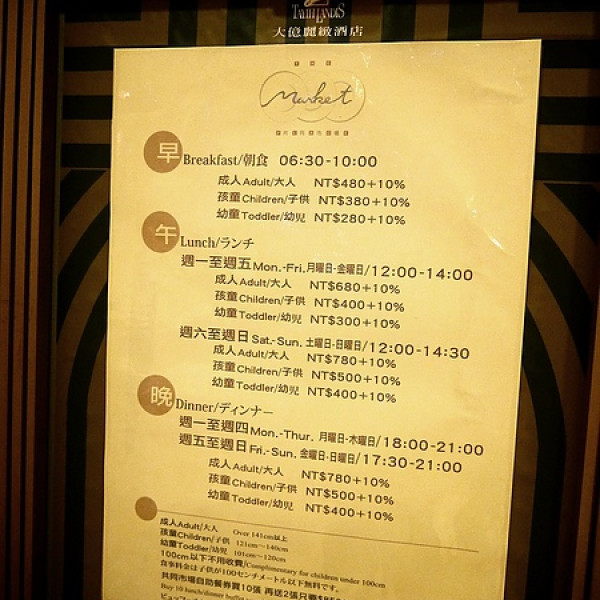 TAYIH LANDIS
大億麗緻酒店
THE
Market
共同市場
早 Breakfast/朝食 06:30-10:00
成人Adult/大人 NT$480+10%
孩童Children/子供 NT$380+10%
幼童Toddler/幼児 NT$280+10%
午 Lunch/ランチ
週一至週五Mon.-Fri.月曜日-金曜日/12:00-14:00
成人Adult/大人 NT$680+10%
孩童Children/子供 NT$400+10%
幼童Toddler/幼児 NT$300+10%
週六至週日Sat.-Sun. 土曜日-日曜日/12:00-14:30
成人Adult/大人 NT$780+10%
孩童Children/子供 NT$500+10%
幼童Toddler/幼児 NT$400+10%
晚 Dinner/ディンナー
週一至週四Mon.-Thur. 月曜日-木曜日/18:00-21:00
週五至週日Fri.-Sun. 金曜日-日曜日/17:30-21:00
成人Adult/大人 NT$780+10%
孩童Children/子供 NT$500+10%
幼童Toddler/幼児 NT$400+10%
成人Adult/大人 Over 141cm以上
孩童Children/子供 121cm~140cm
幼童Toddler/幼児 101cm~120cm
100cm以下不用收費/Complimentary for children under 100cm
食事料金は子供が100センチメートル以下無料です。
共同市場自助餐券買10張 再送2張只要
Buy 10 lunch/dinner buffet